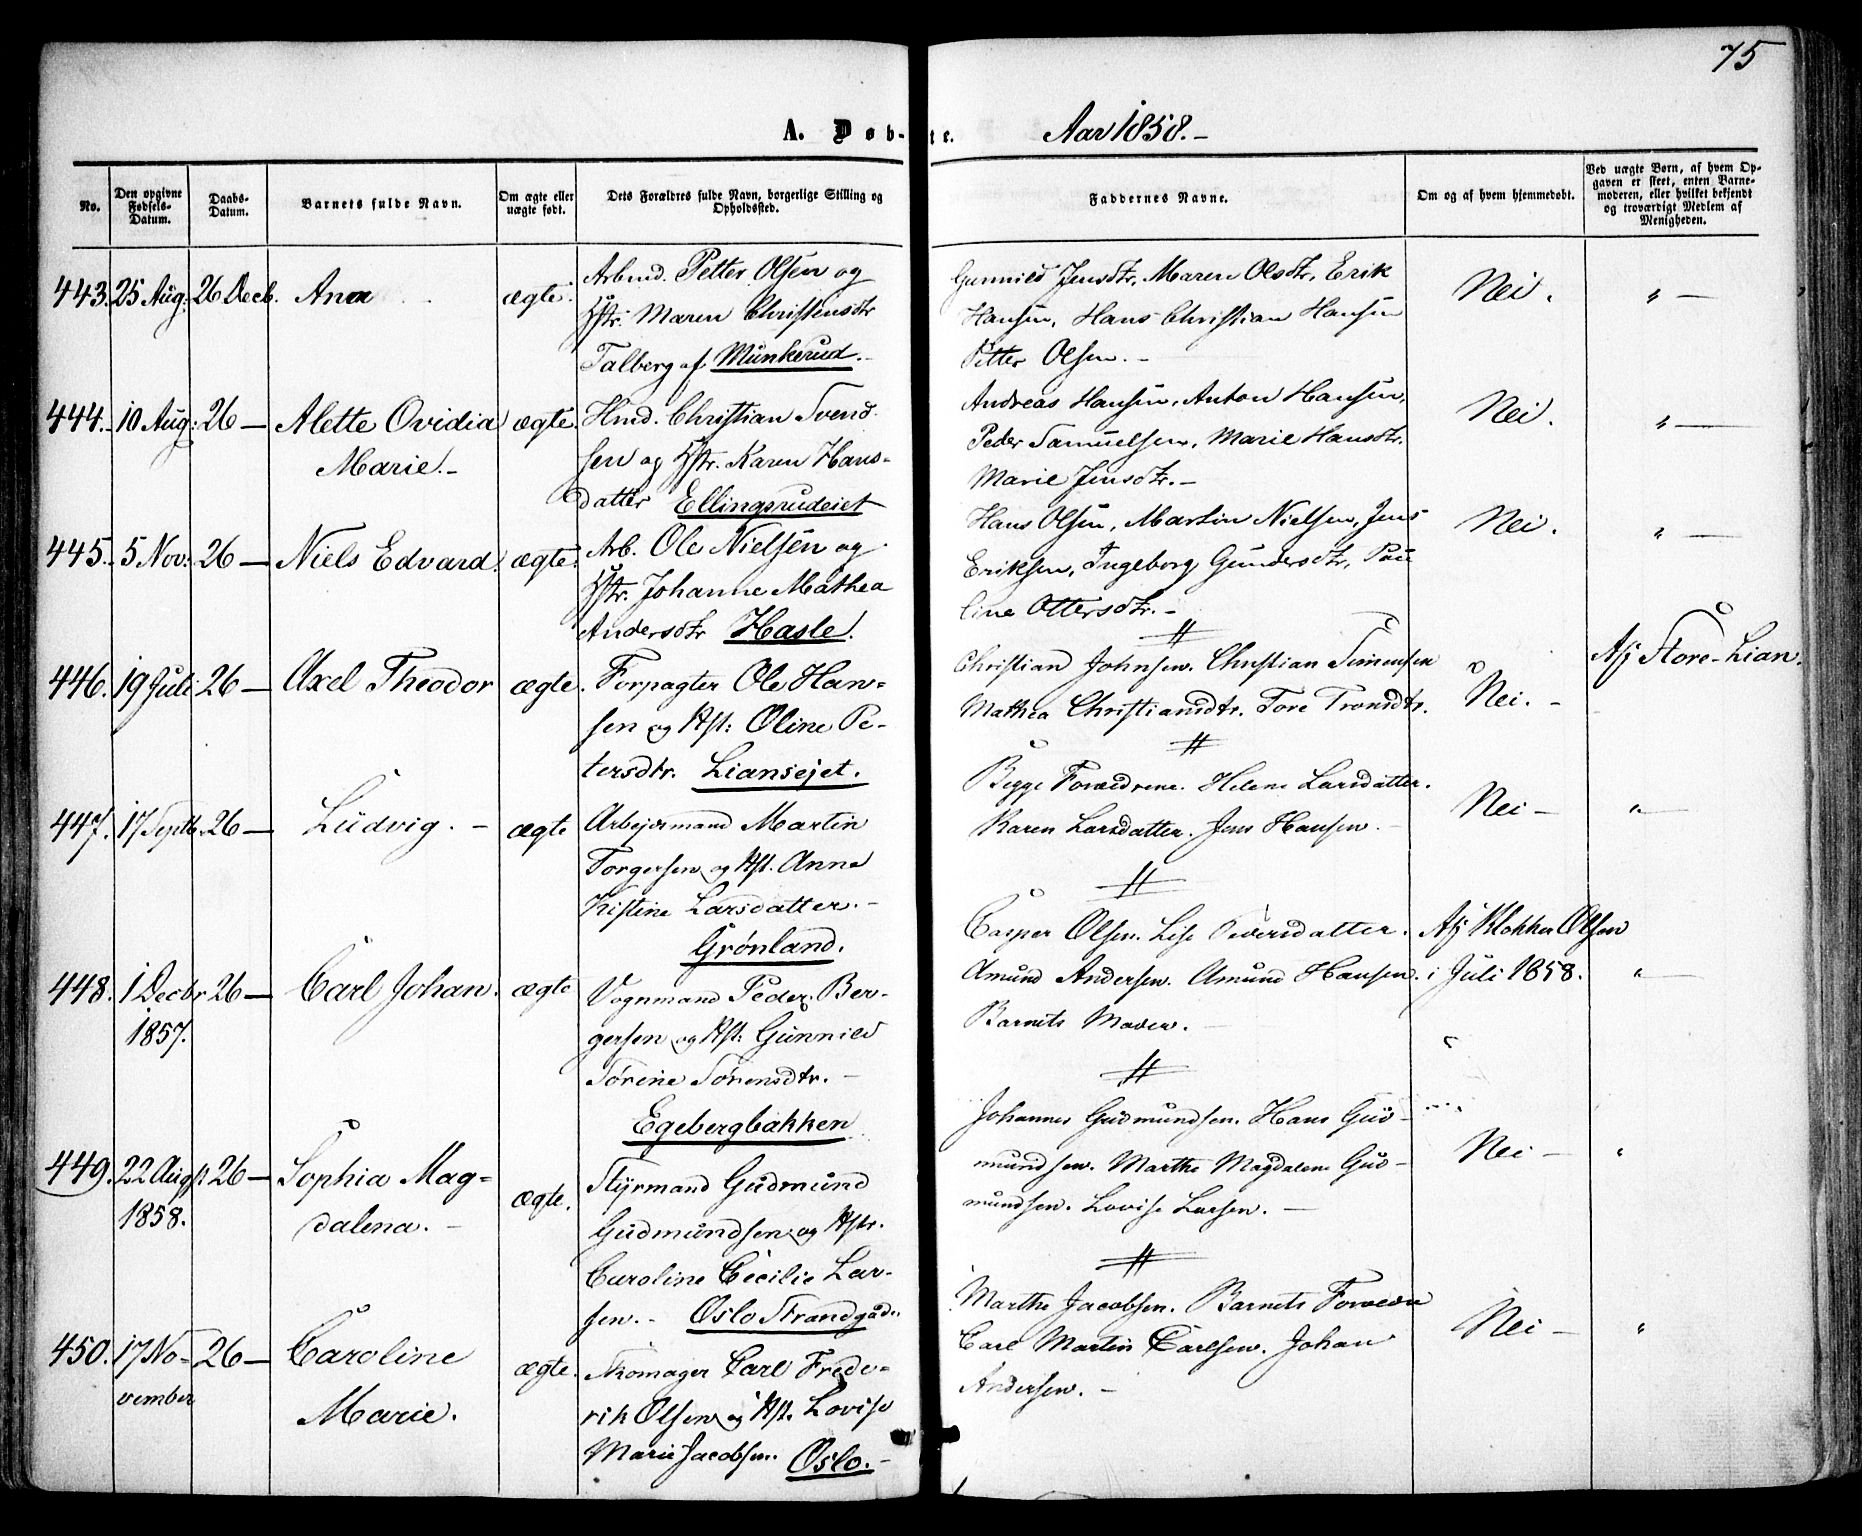 75
A. Døb-te. Aar 1858.-
No.
Den opgivne Fødsels-Datum.
Daabs-Datum.
Barnets fulde Navn.
Om ægte eller uægte født.
Dets Forældres fulde Navn, borgerlige Stilling og Opholdssted.
Faddernes Navne.
Om og af hvem hjemmedøbt.
Ved uægte Børn, af hvem Opgaven er skeet, enten Barnemoderen, eller hvilket bekjendt og troværdigt Medlem af Menigheden.
443. 25 Aug: 26 Decb. Ana ægte.
Arbmd. Petter Olsen og
Hstr. Maren Christensdtr
Talberg af Munkerud.-
Gunnild Jensdtr, Maren Olsdtr, Erik
Hansen, Hans Christian Hansen
Petter Olsen.-
Nei. " —
444. 10 Aug: 26 — Alette Ovidia
Marie.- ægte.
Hmd. Christian Svend-
sen og Hstr. Karen Hans-
datter Ellingsrudeiet
Andreas Hansen, Anton Hansen,
Peder Samuelsen, Marie Hansdtr.
Marie Jensdtr.-
Nei. " —
445. 5 Nov: 26 — Niels Edvard. ægte.
Arb. Ole Nielsen og
Hstr. Johanne Mathea
Andersdtr Hasle.
Hans Olsen, Martin Nielsen, Jens
Eriksen, Ingeborg Gundersdtr, Pau
line Ottersdtr.-
Nei. " —
446. 19 Juli 26 — Axel Theodor ægte.
Forpagter Ole Han-
sen og Hst: Oline Pe-
tersdtr. Liansejet.
Christian Johnsen. Christian Simensen
Mathea Christiansdtr. Tore Tronsdtr.
Nei.-
Afj Store-Lian.
447. 17 Septb. 26 — Ludvig.- ægte
Arbejdsmand Martin
Torgersen og Hst. Anne
Kistine Larsdatter.-
Grønland.
Begge Forældrene. Helene Larsdatter.
Karen Larsdatter. Jens Hansen.-
Nei — " —
448. 1 Decbr 26 — Carl Johan. ægte
1857.
Vognmand Peder Ber-
gersen og Hst: Gunnild
Sørine Sørensdtr.-
Egebergbakken
Casper Olsen. Lise Siversdatter.
Amund Andersen. Amund Hansen.
Barnets Moder.
Afj Klokker Olsen
i Juli 1858. " —
449. 22 Augst 26 — Sophia Mag-
1858. dalena.- ægte.
Styrmand Gudmund
Gudmundsen og Hstr.
Caroline Cecilie Lar-
sen.- Oslo Strandgade.
Johannes Gudmundsen. Hans Gud-
mundsen. Marthe Magdalene Gud-
mundsen. Lovise Larsen.-
Nei — "
450. 17 No- 26 — Caroline
vember Marie. ægte.
Skomager Carl Frede-
rik Olsen og Hst. Lovise
Marie Jacobsen. Oslo.-
Marthe Jacobsen. Barnets Forældre
Carl Martin Carlsen. Johan
Andersen.-
Nei — "